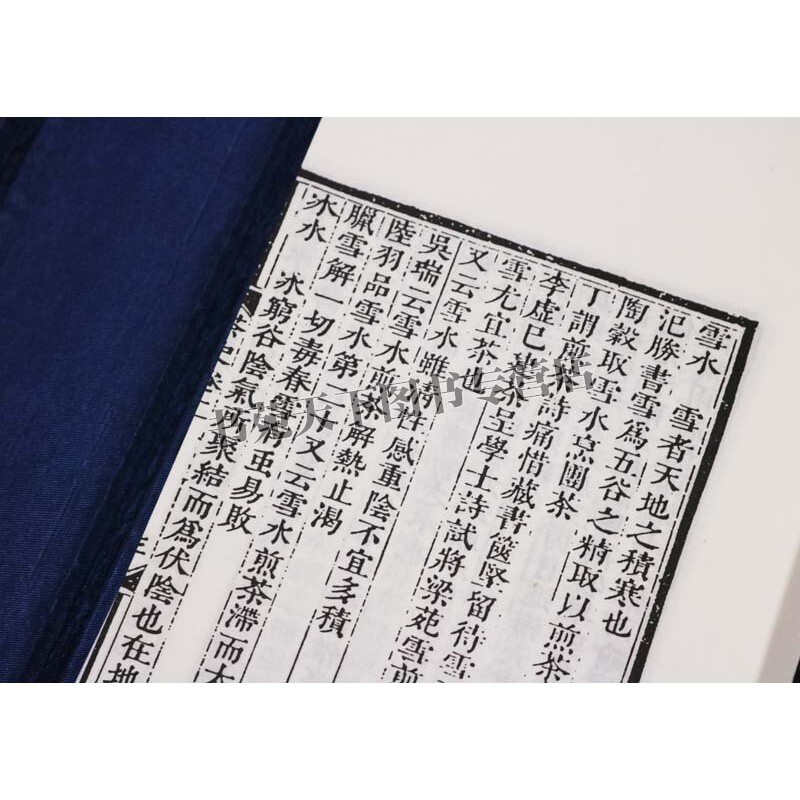 雪水　雪者天地之積寒也
氾勝書雪爲五谷之精取以煎茶
陶穀取雪水烹團茶
丁謂煎茶詩痛惜藏書篋堅留待雪
李虛己建茶呈學士詩試將梁苑雪煎
雪尤宜茶也
又云雪水雖清性感重陰不宜多積
吳瑞云雪水煎茶解熱止渴
陸羽品雪水第二十又云雪水煎茶滯而太
臘雪解一切毒春雪有虫易敗
冰水　冰窮谷陰氣所聚結而爲伏陰也在地
茶史卷
书菀天下图书专营店